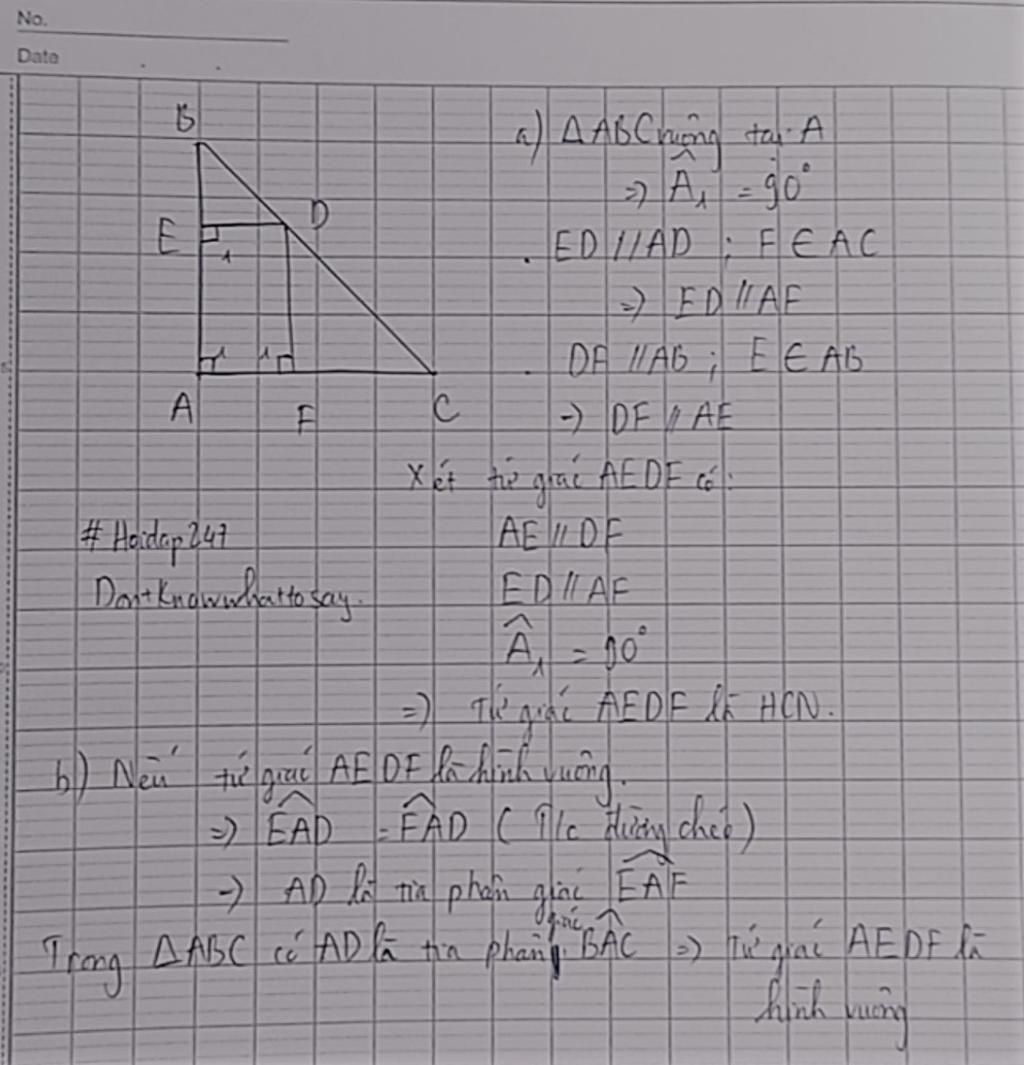 No.
Date
B
E
D
1
1
1
A
F
C
a) ΔABC vuông tại A
=) Â₁ = 90°
. ED // AD ; F ∈ AC
=) ED // AF
. DF // AB ; E ∈ AB
-) DF // AE
Xét tứ giác AEDF có:
AE // DF
ED // AF
Â₁ = 90°
=) Tứ giác AEDF là HCN.
# Hoidap247
DontKnowwhattosay.
b) Nếu tứ giác AEDF là hình vuông.
=) \widehat{EAD} = \widehat{FAD} ( T/c đường chéo )
-) AD là tia phân giác \widehat{EAF}
Trong ΔABC có AD là tia phân giác \widehat{BAC} =) Tứ giác AEDF là
hình vuông